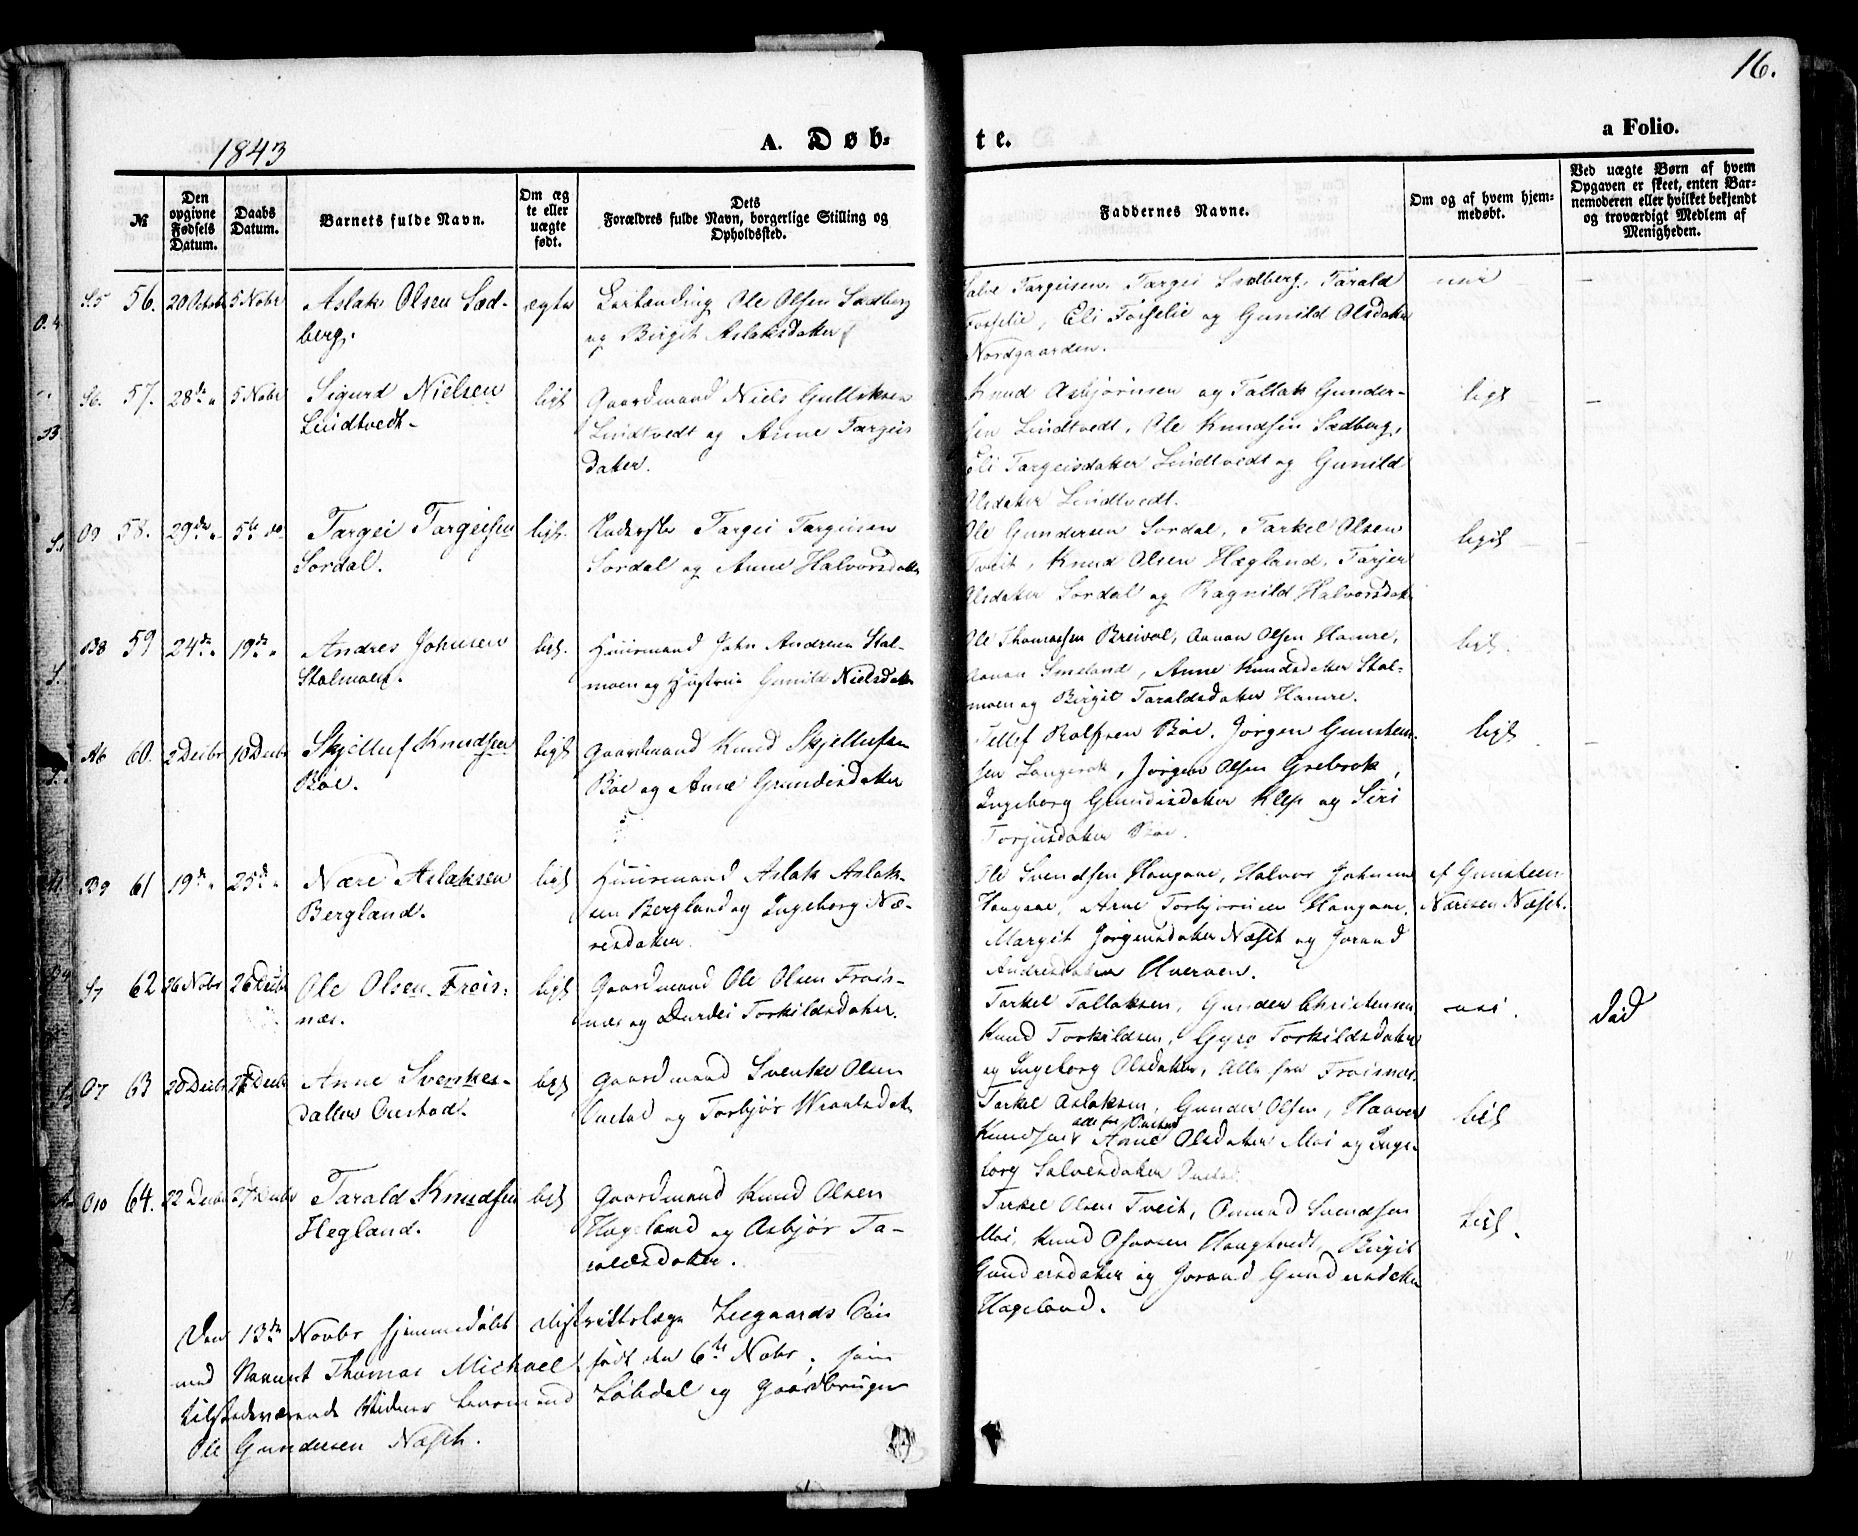 16.
1843
A. Døb-
te.
a Folio.
№
Den opgivne Fødsels Datum.
Daabs Datum.
Barnets fulde Navn.
Om ægte eller uægte født.
Dets Forældres fulde Navn, borgerlige Stilling og Opholdssted.
Faddernes Navne.
Om og af hvem hjemmedøbt.
Ved uægte Børn af hvem Opgaven er skeet, enten Barnemoderen eller hvilket bekjendt og troværdigt Medlem af Menigheden.
S5 56. 20 Octob 5 Nobr Aslak Olsen Sædberg. ægte
Ole Olsen Sædberg
og Birgit Aslaksdater
Salve Targeisen, Targei Sædberg, Tarald
Fosselie, Eli Fosselie og Gunild Olsdater
Nordgaarden.
nei
S6. 57. 28de 5 Nobr Sigurd Nielsen
Lindtvedt ligs
Gaardmand Niels Gulliksen
Lindtvedt og Anne Targeis
dater.
Knud Asbjørnsen og Tallak Gunder-
sen Lindtvedt, Ole Knudsen Sædberg,
Eli Targeisdater Lindtvedt og Gunild
Olsdater Lindtvedt.
ligs
O9 58. 29de 5te do Targei Targeisen
Sordal. ligs.
Targei Targeisen
Sordal og Anne Halvorsdater
Ole Gundersen Sordal, Tarkel Olsen
Tveit, Knud Olsen Hægland, Tarjer
Olsdater Sordal og Ragnild Halvorsdat.
ligs
B8 59 24de 19de Andres Johnsen
Stalmoen. ligs.
Huusmand John Andresen Stal-
moen og Hustrue Gunild Nielsdater
Ole Thomassen Breivol, Aanon Olsen Hamre,
Aanon Smeland, Anne Knudsdater Stal-
moen og Birgit Taraldsdater Hamre.
ligs.
A6 60. 2 Decbr 10 Decbr Skjelluf Knudsen
Bøe. ligs
Gaardmand Knud Skjellufsen
Bøe og Anne Grundesdater
Tellef Rolfsen Bøe, Jørgen Gunsteen-
sen Langerak, Jørgen Olsen Grebrok,
Ingeborg Gundersdater Klep og Siri
Torjusdater Bøe.
ligs
B9 61 19de 25de Nære Aslaksen
Bergland. ligs
Huusmand Aslak Aslak-
sen Bergland og Ingeborg Næ-
resdater.
Ole Svendsen Haugane, Halvor Johnsen
Haugane, Arne Torbjørnsen Haugane,
Margit Jørgensdater Næset og Jorand
Andresdater Uverven.
af Gunsteen
Næresen Næset.
S7 62 26 Nobr 26 Decbr Ole Olsen Frøis-
næs. ligs
Gaardmand Ole Olsen Frøis-
næs og Durdei Torkildsdater.
Tarkel Tallaksen, Gunder Christensen
Knud Torkildsen, Gyro Torkildsdater
og Ingeborg Olsdater, Alle fra Frøisnæs.
nei.
død
O7 63 20 Decbr 27 Decbr Anne Svenkes-
datter Oustad. ligs
Gaardmand Svenke Olsen
Oustad og Torbjør Wraalsdat
Tarkel Aslaksen, Gunder Olsen, Haavor
Knudsen alle fra Oustad Anne Olsdater Moi og Inge-
borg Salvesdater Oustad.
ligs
O10 64. 22 Decbr 27 Decbr Tarald Knudsen
Hegland. ligs
Gaardmand Knud Olsen
Hageland og Asbjør Ta-
raldsdater.
Tarkel Olsen Tveit, Omund Svendsen
Moi, Knud Haugtvedt, Birgit
Gundersdater og Jorand Gundersdater
Hageland.
ligs.
Den 13de Novbr hjemmedøbt Distriktslæge Leegaards Søn
med Navnet Thomas Michael, født den 6te Nobr,
tilstedeværende Vidner Løbdal og Gaardbruger
Ole Gundersen Næset.